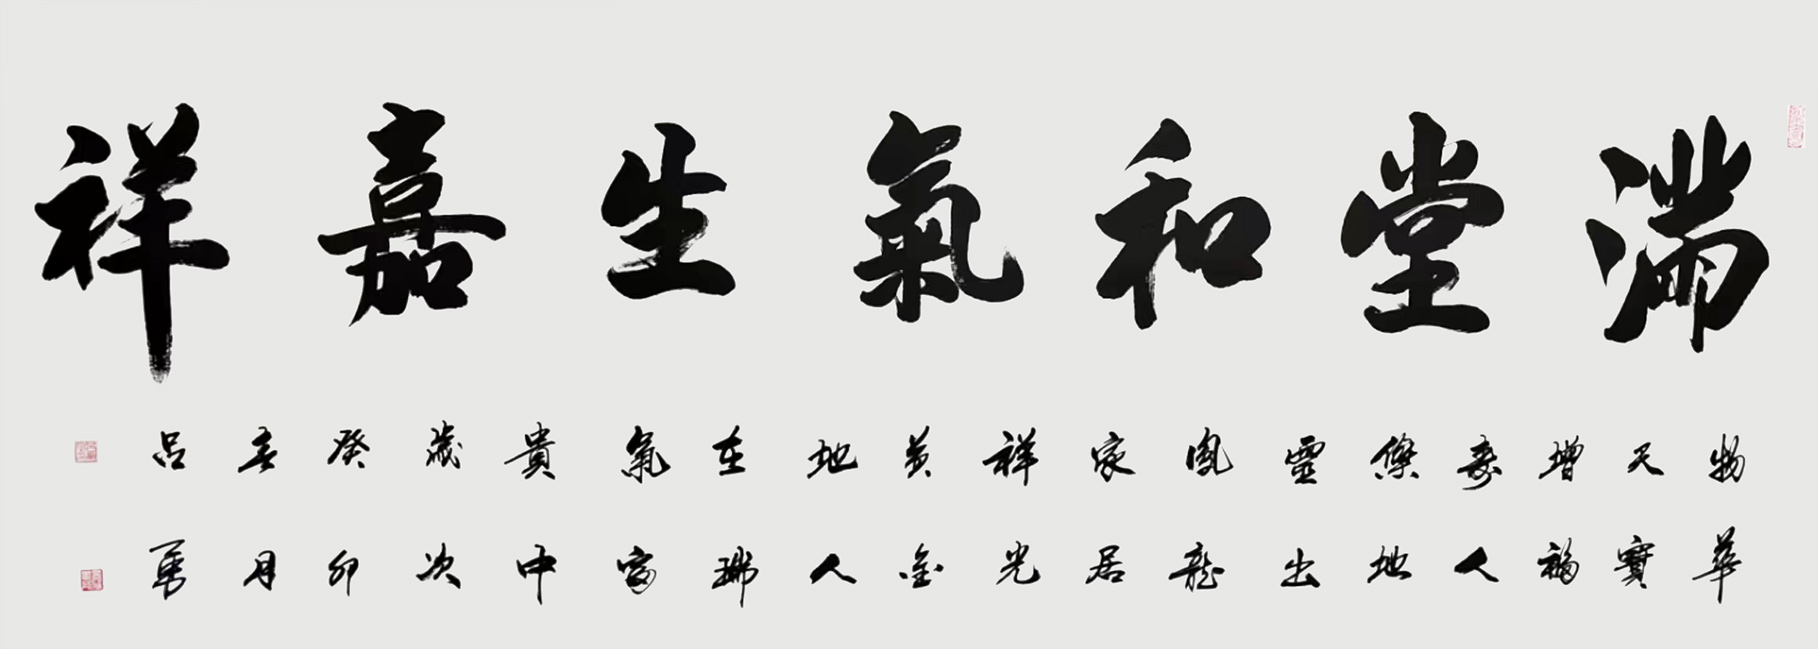 滿堂和氣生嘉祥
物華
天寶
增福
壽人
傑地
靈出
鳳龍
家居
祥光
黄金
地人
在瑞
氣富
貴中
歲次
癸卯
春月
吕勇